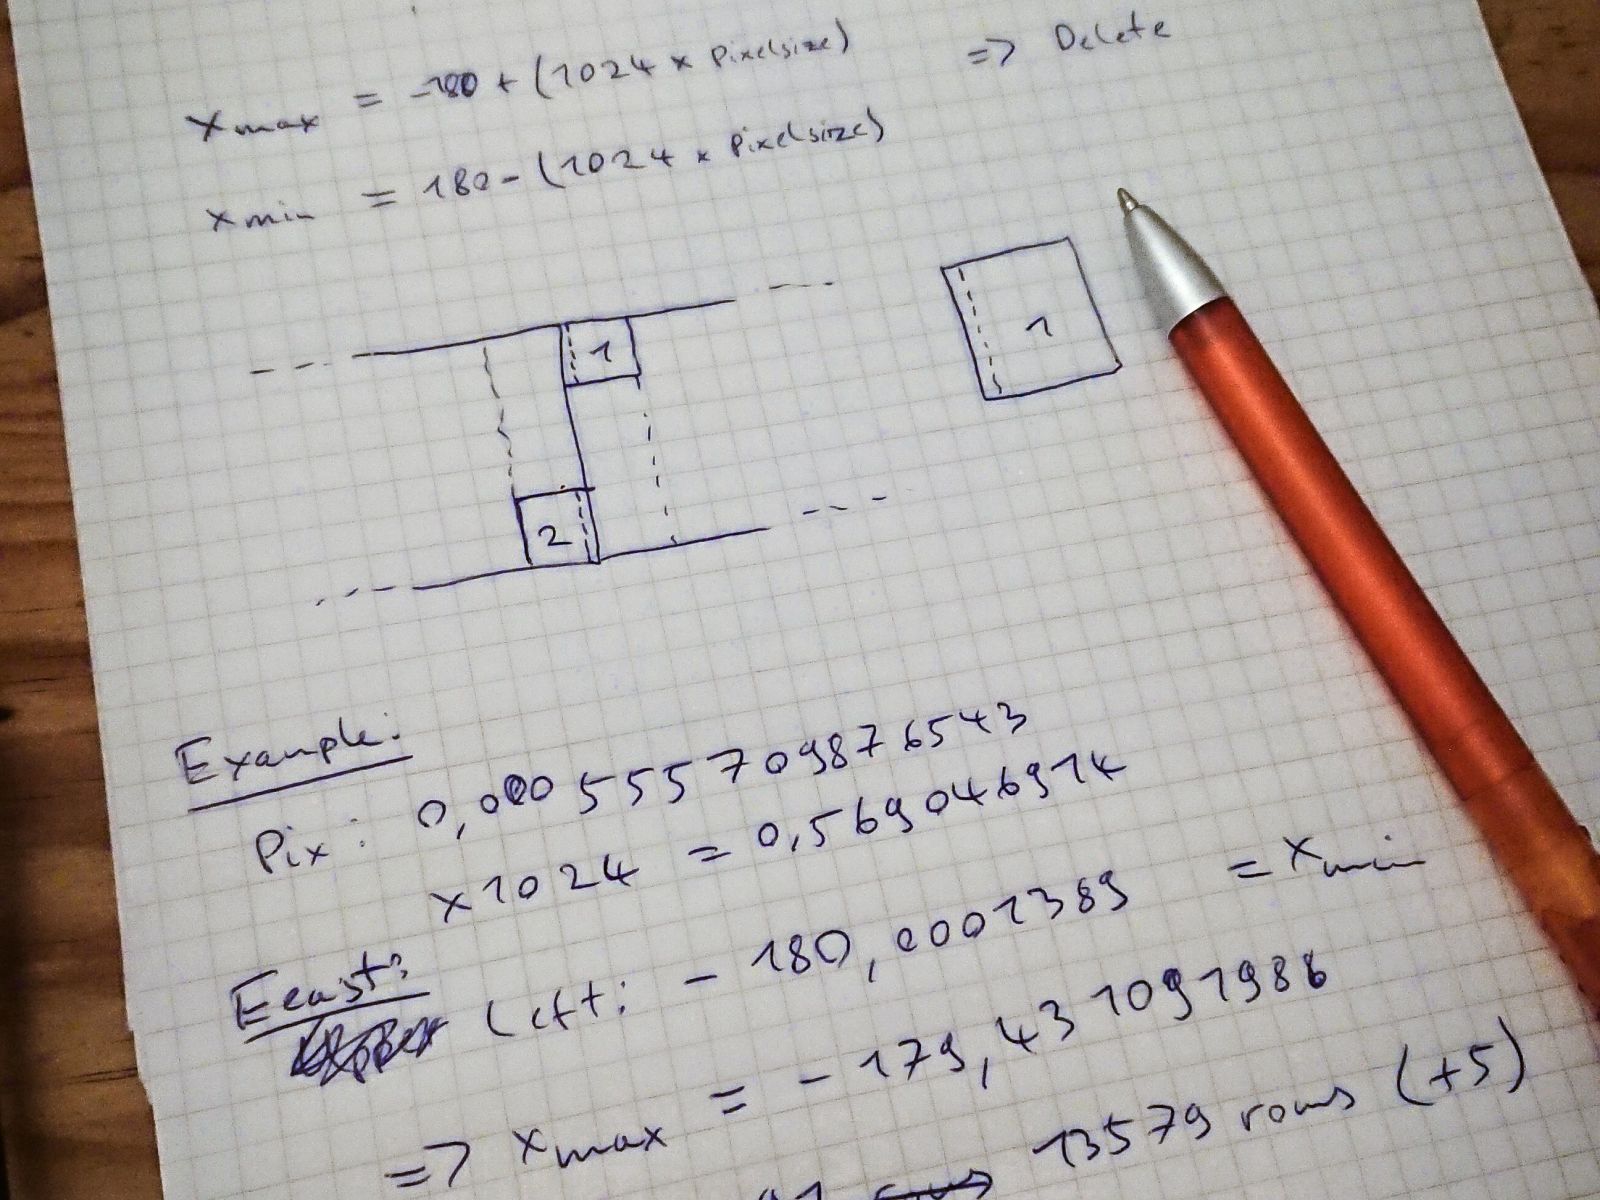 xmax = -180 + (1024 x Pixelsize) => Delete
xmin = 180 - (1024 x Pixelsize)
1
1
2
Example:
Pix: 0,000555709876543
x1024 = 0,569046914
Eeast:
Left: -180,0001389 = xmin
=> xmax = -179,431091986
13579 rows (+5)